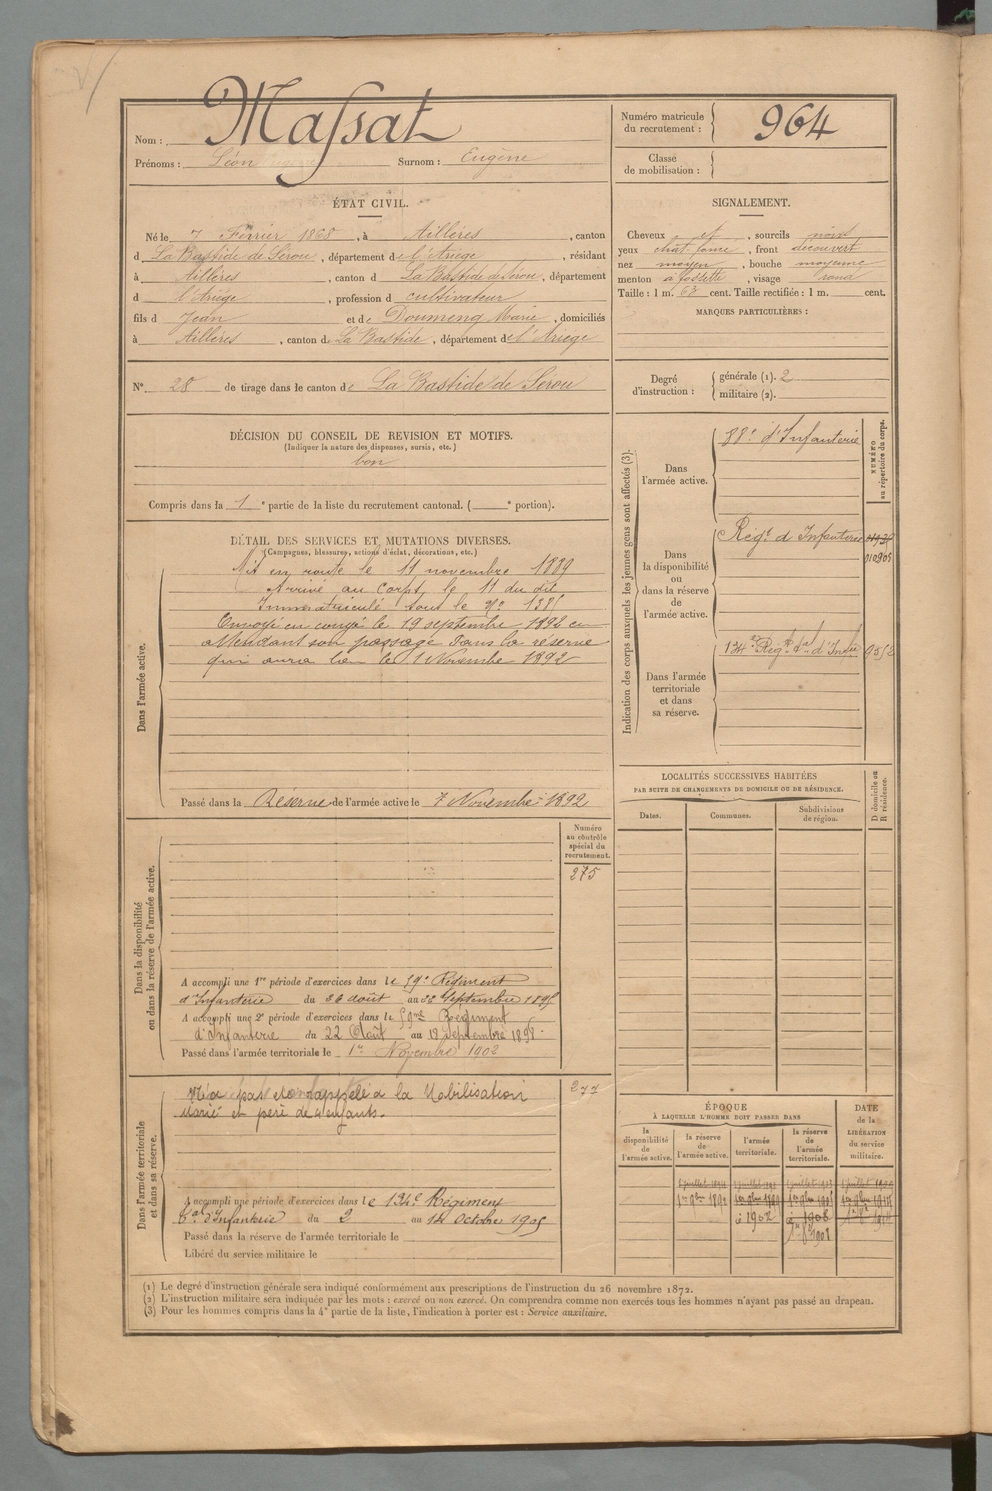 Nom : Massat
Prénoms : Léon Surnom : Eugène
Numéro matricule du recrutement : 964
Classe de mobilisation :
ÉTAT CIVIL.
Né le 7 Février 1868, à Aillères, canton
d La Bastide de Sérou, département de l'Ariège, résidant
à Aillères, canton d La Bastide de Sérou, département
d l'Ariège, profession d cultivateur
fils d Jean et de Doumeng Marie, domiciliés
à Aillères, canton de La Bastide, département de l'Ariège
N° 28 de tirage dans le canton de La Bastide de Sérou
SIGNALEMENT.
Cheveux et, sourcils noirs
yeux chat. foncé, front découvert
nez moyen, bouche moyenne
menton à fossette, visage rond
Taille : 1 m. 63 cent. Taille rectifiée : 1 m. cent.
MARQUES PARTICULIÈRES :
Degré d'instruction : générale (1). 2
militaire (2).
DÉCISION DU CONSEIL DE REVISION ET MOTIFS.
(Indiquer la nature des dispenses, sursis, etc.)
bon
Compris dans la 1e partie de la liste du recrutement cantonal. ( e portion).
DÉTAIL DES SERVICES ET MUTATIONS DIVERSES.
(Campagnes, blessures, actions d'éclat, décorations, etc.)
Dans l'armée active.
Mis en route le 11 novembre 1889
Arrivé au Corps le 11 du dit
Immatriculé sous le N°
Envoyé en congé le 19 septembre 1892 en
attendant son passage dans la réserve
qui aura lieu le 1 Novembre 1892
Passé dans la Réserve de l'armée active le 7 Novembre 1892
Indication des corps auxquels les jeunes gens sont affectés (3).
NUMÉRO au répertoire du corps.
Dans l'armée active.
88e d'Infanterie
Dans la disponibilité ou dans la réserve de l'armée active.
Régt d'Infanterie
010905
Dans l'armée territoriale et dans sa réserve.
134e Régt tal d'Infie
LOCALITÉS SUCCESSIVES HABITÉES
PAR SUITE DE CHANGEMENTS DE DOMICILE OU DE RÉSIDENCE.
Dates. Communes. Subdivisions de région. D domicile ou R résidence.
Dans la disponibilité ou dans la réserve de l'armée active.
Numéro au contrôle spécial du recrutement.
275
A accompli une 1re période d'exercices dans le 59e Régiment
d'Infanterie du 26 août au 22 Septembre 1895
A accompli une 2e période d'exercices dans le 59me Régiment
d'Infanterie du 22 Août au 18 Septembre 1898
Passé dans l'armée territoriale le 1er Novembre 1902
Dans l'armée territoriale et dans sa réserve.
277
N'a pas été rappelé à la Mobilisation
Marié et père de 4 enfants.
A accompli une période d'exercices dans le 134e Régiment
tal d'Infanterie du 2 au 14 Octobre 1905
Passé dans la réserve de l'armée territoriale le
Libéré du service militaire le
ÉPOQUE
À LAQUELLE L'HOMME DOIT PASSER DANS
la disponibilité de l'armée active.
la réserve de l'armée active.
l'armée territoriale.
la réserve de l'armée territoriale.
DATE de la LIBÉRATION du service militaire.
1er 9bre 1892
1902
1908
(1) Le degré d'instruction générale sera indiqué conformément aux prescriptions de l'instruction du 26 novembre 1872.
(2) L'instruction militaire sera indiquée par les mots : exercé ou non exercé. On comprendra comme non exercés tous les hommes n'ayant pas passé au drapeau.
(3) Pour les hommes compris dans la 4e partie de la liste, l'indication à porter est : Service auxiliaire.